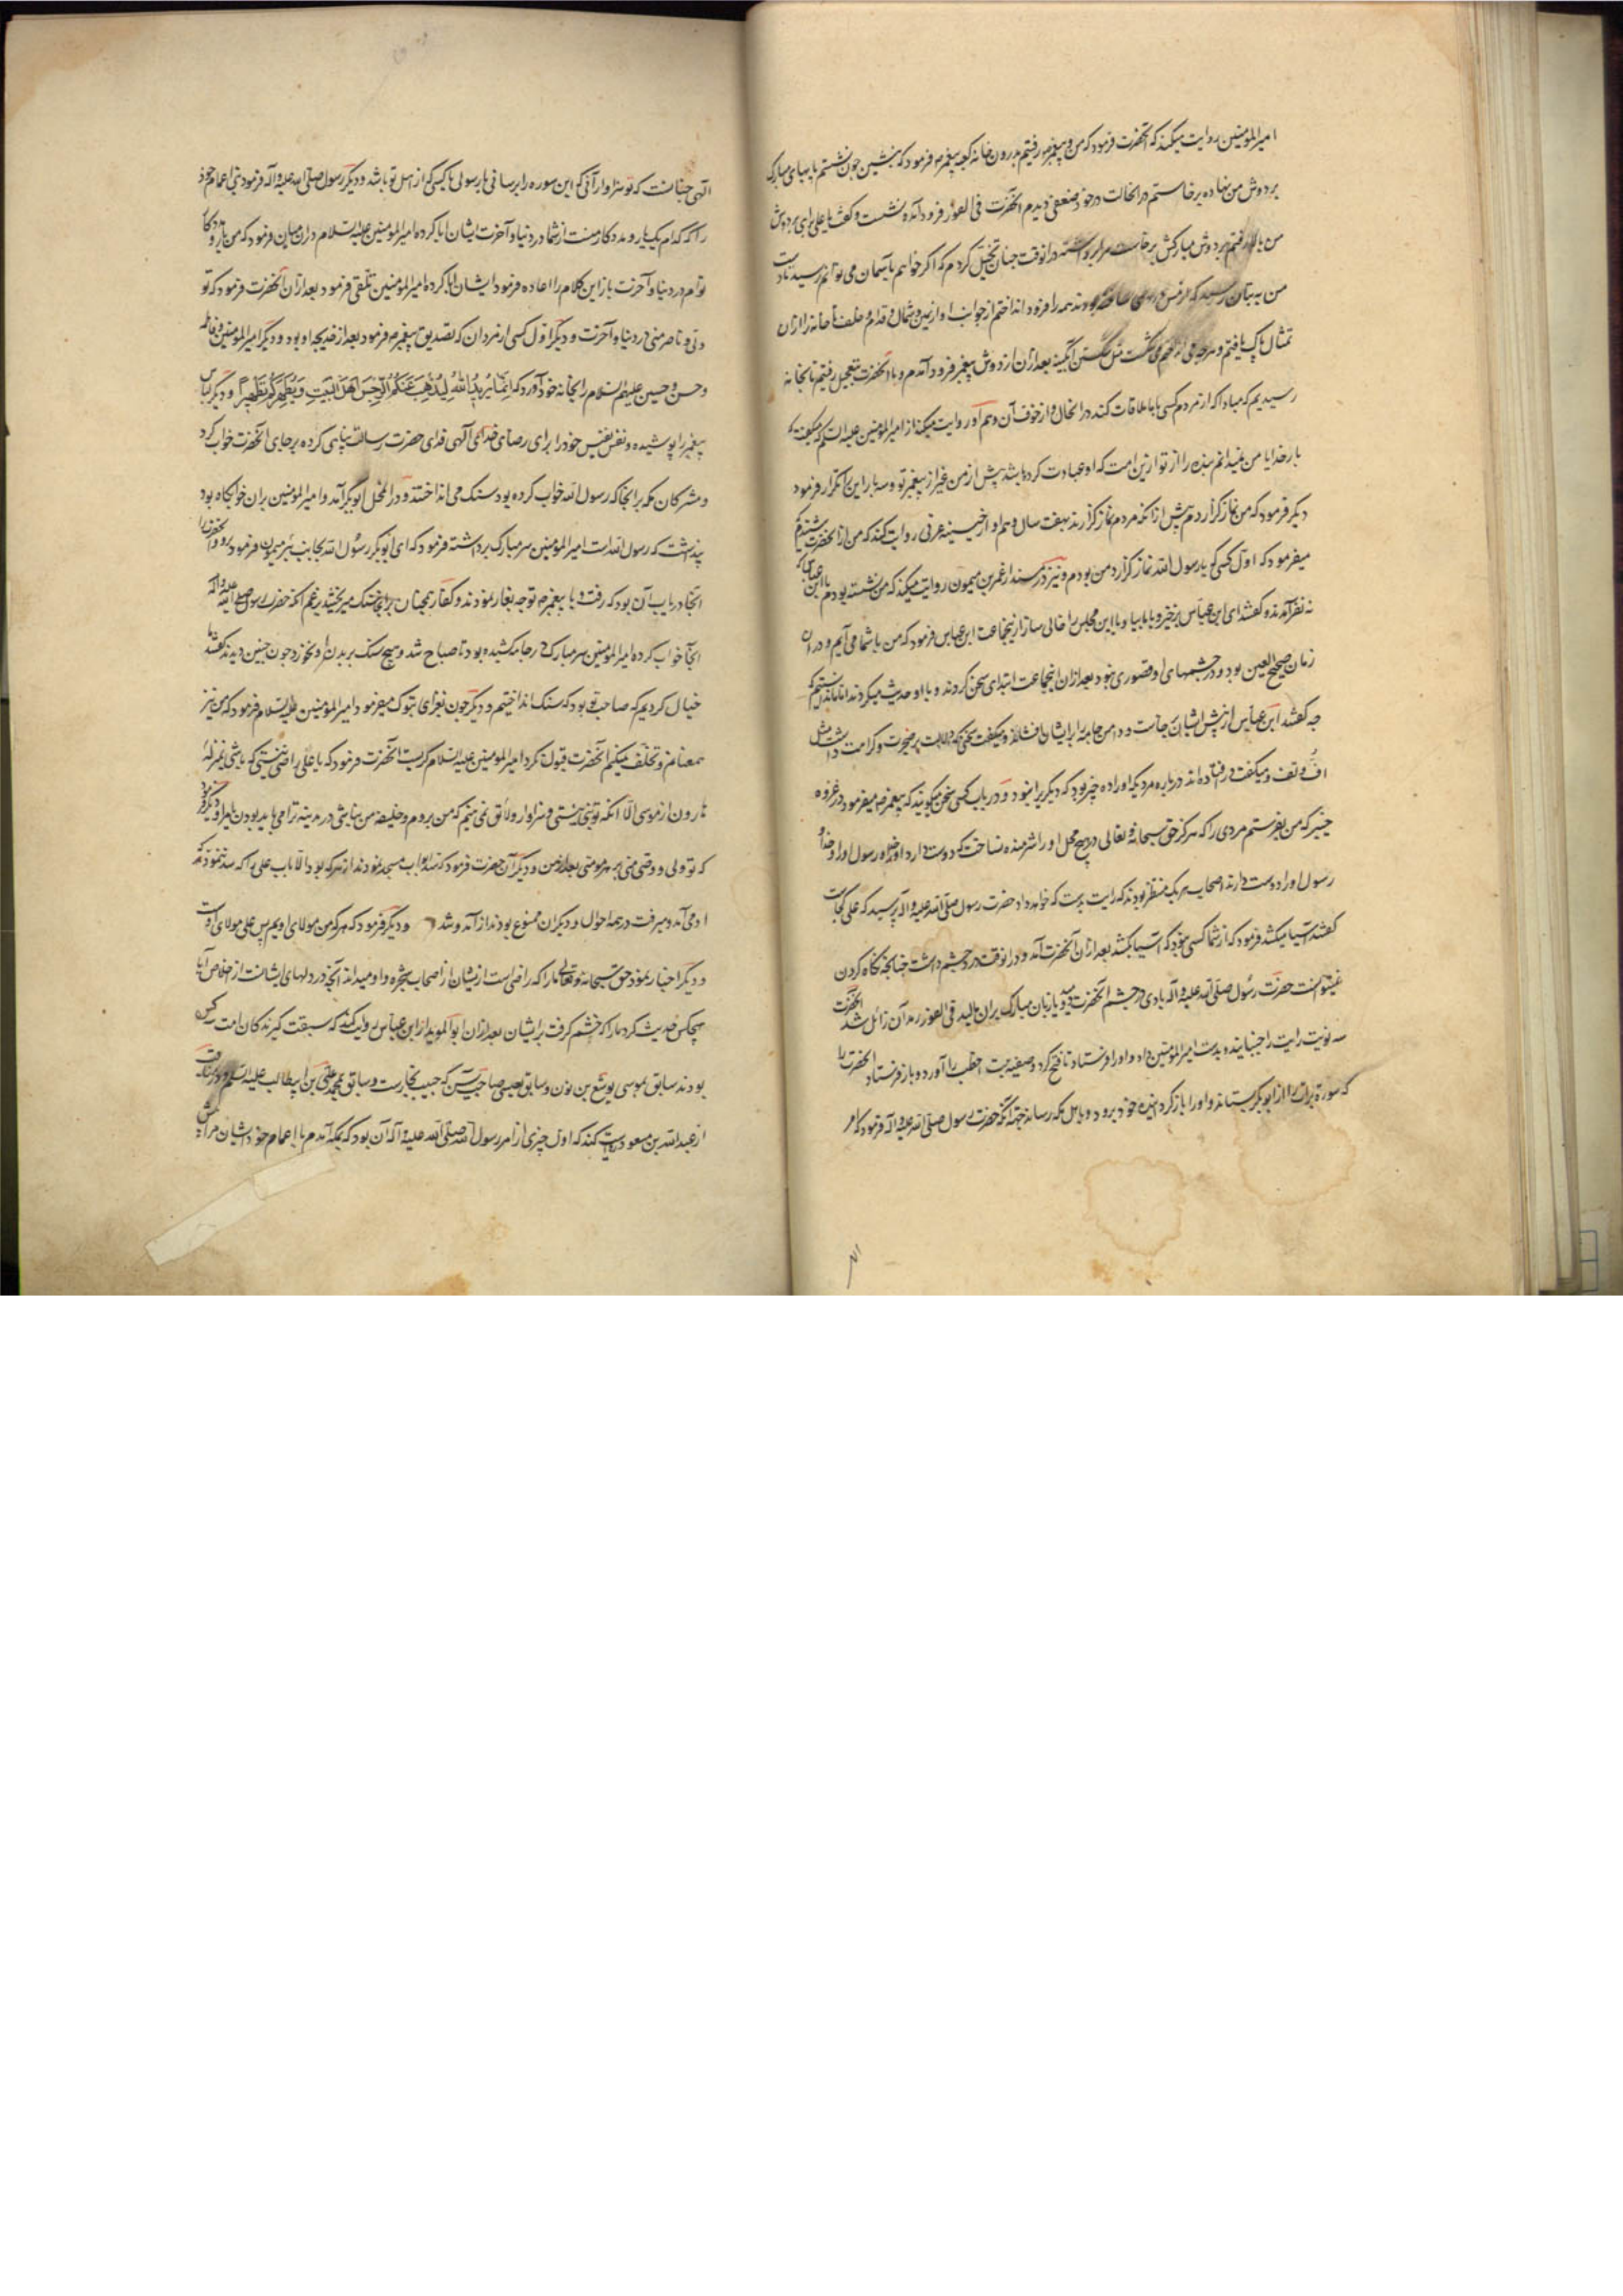 امیرالمؤمنین روایت میکند که آنحضرت فرمود که من و پیغمبر ص رفتیم بدرون خانه کعبه پیغمبر ص فرمود که بنشین چون نشستم پایهای مبارک
بر دوش من نهاده برخاستم در انحالت در خود ضعفی دیدم آنحضرت فی الفور فرود آمده نشست و گفت یا علی برای بر دوش
من بالا رفتم بر دوش مبارکش برخاست در انوقت چنان تخیل کردم که اگر خواهم بآسمان می توانم رسید تا دست
من به بتان رسید که از مس بودند همه را فرود انداختم از جوانب او از یمین و شمال و قدام و خلف تا خانه را از ان
تمثال پاک یافتم و می شکست مثل شکستن آبگینه بعد از ان از دوش پیغمبر فرود آمدم و با آنحضرت بتعجیل رفتیم تا بخانه
رسیدیم که مبادا که از مردم کسی با ما ملاقات کند در انحال و از خوف آن و هم او روایت میکند از امیرالمؤمنین علیه السلم که میگفت که
بار خدایا من نمیدانم بنده را از تو ازین امت که او عبادت کرده باشد پیش از من غیر از پیغمبر تو و سه بار این تکرار فرمود
دیگر فرمود که من نماز گزاردم پیش از انکه مردم نماز گزارند بهفت سال و هم او از حبیه عرنی روایت کند که من از آنحضرت شنیدم که
میفرمود که اول کسی که با رسول الله نماز گزارد من بودم و نیز در مسند از عمر بن میمون روایت میکند که من نشسته بودم با ابن عباس که
نه نفر آمدند و گفتند ای ابن عباس برخیز و با ما بیا و یا این مجلس را خالی ساز ازینجماعت ابن عباس فرمود که من با شما می آیم و در ان
زمان صحیح العین بود و در چشمهای او قصوری نبود بعد ازان انجماعت ابتدای سخن کردند و با او حدیث میکردند اما ندانستیم که
چه گفتند ابن عباس از پیش ایشان برجاست و دامن جامه را بر ایشان فشاند و میگفت سخنی که دلالت بر ضجرت و کرامت داشت مثل
اف و تف و میگفت در افتاده اند درباره مردیکه او را ده چیز بود که دیگریرا نبود و در باب کسی سخن میگویند که پیغمبر ص میفرمود در غزوه
خیبر که من بفرستم مردی را که هرگز حق سبحانه و تعالی در هیچ محل او را شرمنده نساخت که دوست دارد او خدا و رسول او را و خدا و
رسول او را دوست دارند اصحاب هر یک منتظر بودند که رایت بدست که خواهد داد حضرت رسول صلی الله علیه و آله پرسید که علی کجاست
گفتند آسیا میکشد فرمود که از شما کسی نبود که آسیا بکشد بعد از ان آنحضرت آمد و در انوقت درد چشم داشت چنانچه نگاه کردن
نمیتوانست حضرت رسول صلی الله علیه و آله بادی در چشم آنحضرت دمید و یا زبان مبارک بران مالید فی الفور رمد آن زائل شد آنحضرت
سه نوبت رایت را جنبانیده بدست امیرالمؤمنین داد و او را فرستاد تا فتح کرد و صفیه بنت اخطب را آورد و باز فرستاد آنحضرت را
که سوره براءت را از ابوبکر بستاند و او را باز گرداند خود برود و باهل مکه رساند جهت آنکه حضرت رسول صلی الله علیه و آله فرمود که امر
الهی چنانست که تو سزاوار آنی که این سوره را برسانی یا رسولی یا کسی که از اهل تو باشد و دیگر رسول صلی الله علیه و آله فرمود بنی اعمام خود
را که کدام یک یار و مددکار منست از شما در دنیا و آخرت ایشان ابا کرده امیرالمؤمنین علیه السلام دران میان فرمود که من یار و مددکار
توام در دنیا و آخرت باز این کلام را اعاده فرمود ایشان ابا کرده امیرالمؤمنین تلقی فرمود بعد ازان آنحضرت فرمود که تو
ولی و ناصر منی در دنیا و آخرت و دیگر اول کسی از مردان که تصدیق پیغمبر ص فرمود بعد از خدیجه او بود و دیگر امیرالمؤمنین و فاطمه
و حسن و حسین علیهم السلام را بخانه خود آورد که انما یرید الله لیذهب عنکم الرجس اهل البیت و یطهرکم تطهیرا و دیگر لباس
پیغمبر را پوشیده و نفس نفیس خود را برای رضای خدای الهی فدای حضرت رسالت پناهی کرده بر جای آنحضرت خواب کرد
و مشرکان مکه بر انجا که رسول الله خواب کرده بود سنک می انداختند و در المحل ابوبکر آمد و امیرالمؤمنین بران خوابگاه بود
پنداشت که رسول الله است امیرالمؤمنین سر مبارک برداشته فرمود که ای ابوبکر رسول الله بجانب بئر میمون فرمود برو و آنحضرت را
انجا دریاب آن بود که رفت و با پیغمبر ص توجه بغار نمودند و کفار همچنان سنک میریختند بزعم انکه حضرت رسول صلی الله علیه و آله
انجا خواب کرده امیرالمؤمنین سر مبارک در جامه کشیده بود تا صباح شد و هیچ سنک بر بدن او نخورد چون چنین دیدند گفتند ما
خیال کردیم که صاحب تو بود که سنک انداختیم و دیگر چون بغزای تبوک میفرمود امیرالمؤمنین علیه السلام فرمود که من نیز
همعنانم و تخلف نمیکنم آنحضرت قبول نکرد امیرالمؤمنین علیه السلام گریست آنحضرت فرمود که یا علی راضی نیستی که باشی بمنزله
هارون از موسی الا انکه تو نبی نیستی و سزاوار و لائق نمی بینم که من بروم و خلیفه من نباشی در مدینه ترا می باید بودن یا مرا و دیگر فرمود
که تو ولی و وصی منی بر هر مومنی بعد از من و دیگر آن حضرت فرمود که سد ابواب مسجد نمودند از هر که بود الا باب علی را که سد ننمودند که
او می آمد و میرفت در همه احوال و دیگران ممنوع بودند از آمد و شد و دیگر فرمود که هر که من مولای اویم پس علی مولای اوست
و دیگر اخبار نمود حق سبحانه و تعالی ما را که راضی است ازیشان از اصحاب شجره و او میداند آنچه در دلهای ایشانست از اخلاص آیا
هیچکس حدیث کرد ما را که خشم گرفت بر ایشان بعد ازان ابوالموید از ابن عباس روایت کند که سبقت گیرندگان امت سه کس
بودند سابق بموسی یوشع بن نون و سابق بعیسی صاحب یس که حبیب نجارست و سابق بمحمد علی بن ابیطالب علیه السلم و در مناقب
از عبدالله بن مسعود روایت کند که اول چیزی از امر رسول الله صلی الله علیه و آله آن بود که بمکه آمدم با اعمام خود ایشان مرا پیش